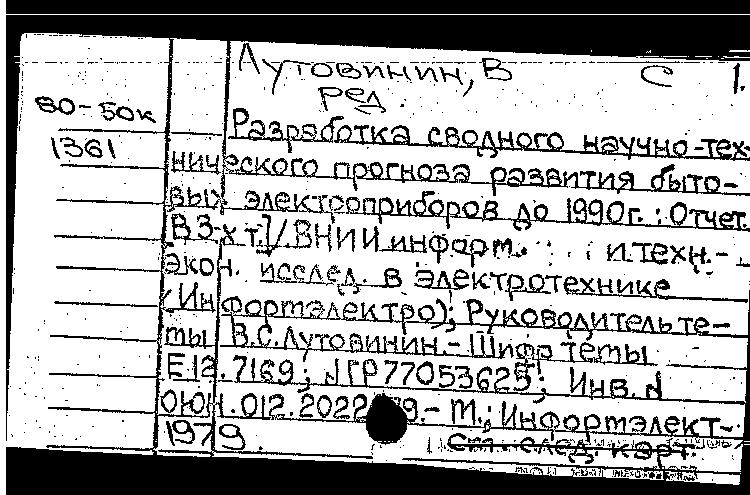 Лутовинин, В С 1.
ред.
80-50к
Разработка сводного научно-тех-
1361
нического прогноза развития быто-
вых электроприборов до 1990г.: Отчет.
[В 3-х т.]/ВНИИ информ. и техн.-
экон. исслед. в электротехнике
(Информэлектро); Руководитель те-
мы В.С.Лутовинин.- Шифр темы
Е.12.7169; №ГР77053625; Инв.№
012.2022 79.- М.: Информэлект-
1979.
См. след. карт.